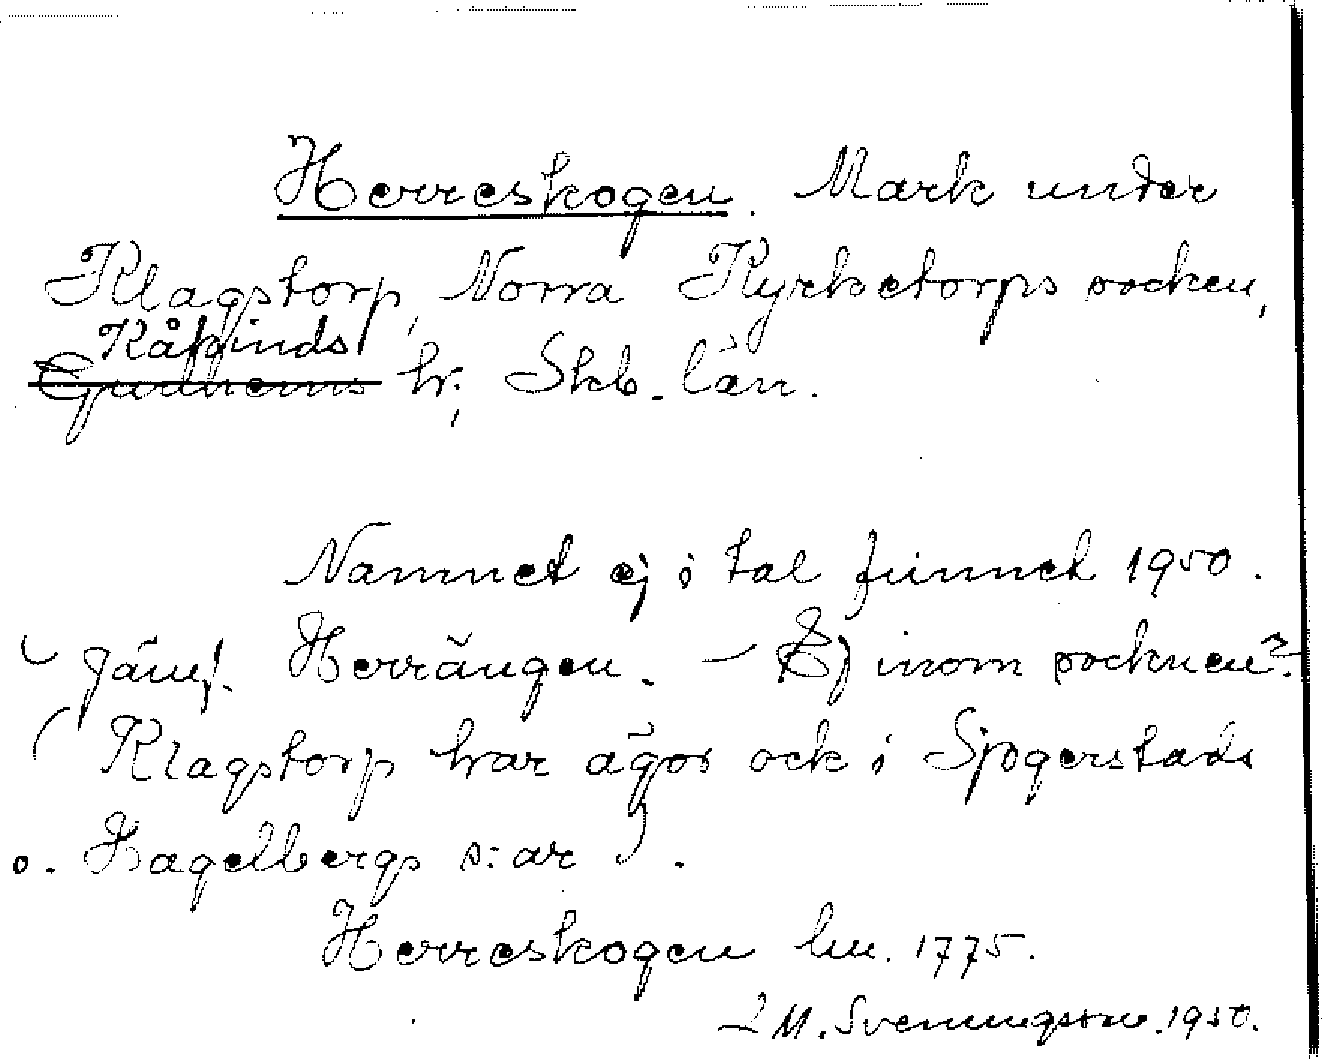 Herreskogen. Mark under
Klagstorp, Norra Kyrketorps socken,
Kåkinds
Gudhems hr, Skb. län.
Namnet ej i tal funnet 1950.
Jämf. Herrängen. – Ej inom socknen?
(Klagstorp har ägor ock i Sjogerstads
o. Hagelbergs s:ar).
Herreskogen lm. 1775.
M. Svenungsson. 1950.